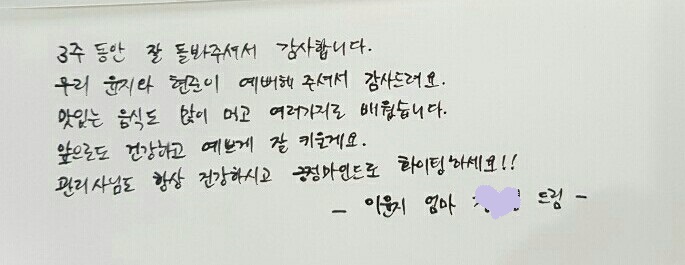 3주 동안 잘 돌봐주셔서 감사합니다.
우리 윤지와 현준이 예뻐해 주셔서 감사드려요.
맛있는 음식도 많이 먹고 여러가지로 배웠습니다.
앞으로도 건강하고 예쁘게 잘 키울게요.
관리사님도 항상 건강하시고 긍정마인드로 화이팅하세요!!
- 이윤지 엄마 드림 -